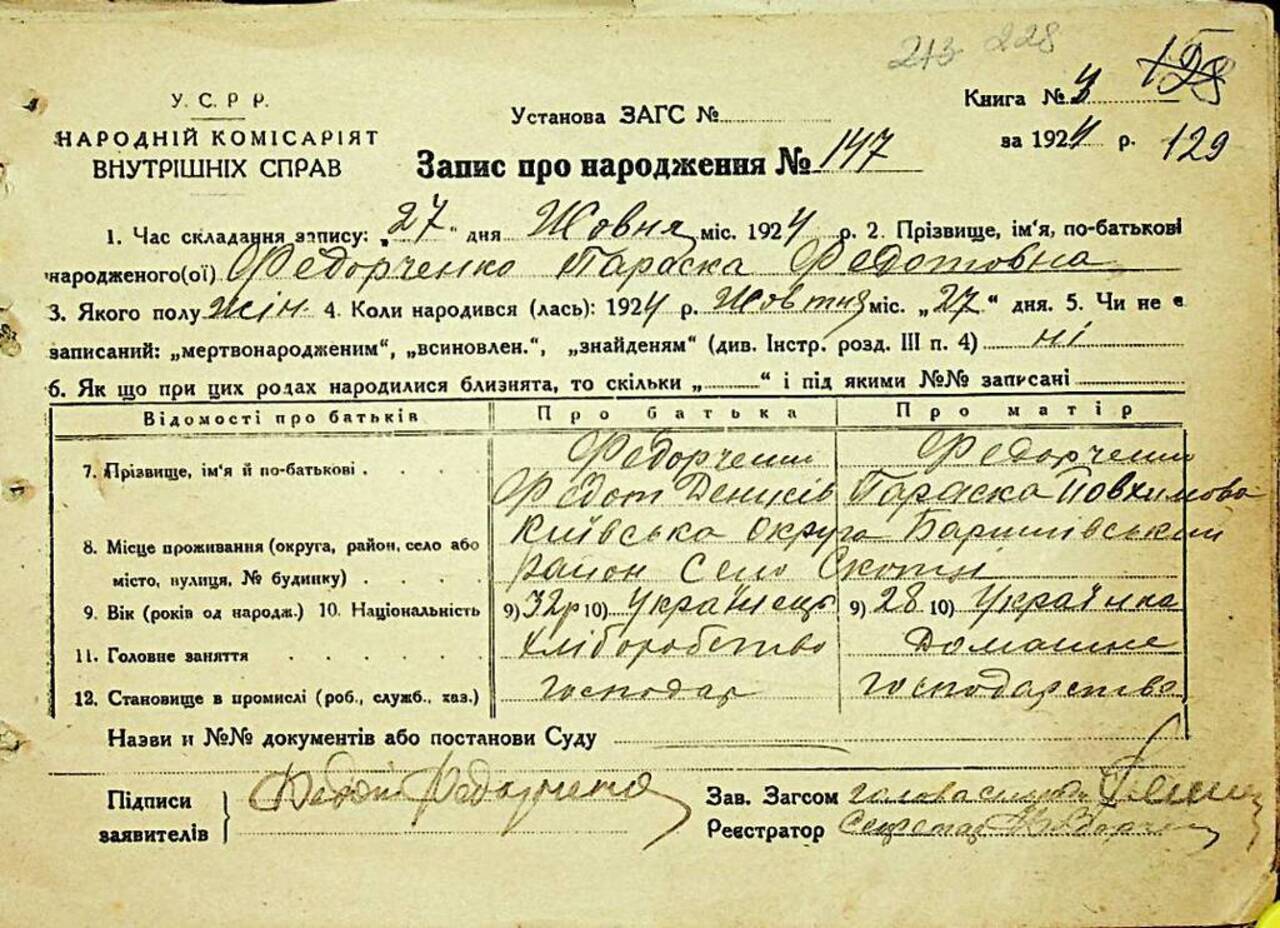 213 228
128
У. С. Р. Р.
НАРОДНІЙ КОМІСАРІЯТ
ВНУТРІШНІХ СПРАВ
Установа ЗАГС №
Книга №
за 1924 р. 129
Запис про народження № 147
1. Час складання запису: „27“ дня Жовня міс. 1924 р. 2. Прізвище, ім'я, по-батькові
народженого(ої) Федорченко Параска Федотовна
3. Якого полу жін. 4. Коли народився (лась): 1924 р. Жовтня міс. „27“ дня. 5. Чи не є
записаний: „мертвонародженим“, „всиновлен.“, „знайденям“ (див. Інстр. розд. III п. 4) ні
6. Як що при цих родах народилися близнята, то скільки „ “ і під якими №№ записані
Відомості про батьків Про батька Про матір
7. Прізвище, ім'я й по-батькові Федорченко Федорченко
Федот Денисів Параска Йовхимова
8. Місце проживання (округа, район, село або Київська округа Баришівський
місто, вулиця, № будинку) район Село Скопці
9. Вік (років од народж.) 10. Національність 9) 32р 10) Українець 9) 28 10) Українка
11. Головне заняття Хліборобство Домашнє
12. Становище в промислі (роб., служб., хаз.) господар господарство
Назви й №№ документів або постанови Суду
Підписи Федот Федорченко
заявителів
Зав. Загсом голова
Реєстратор Секретар